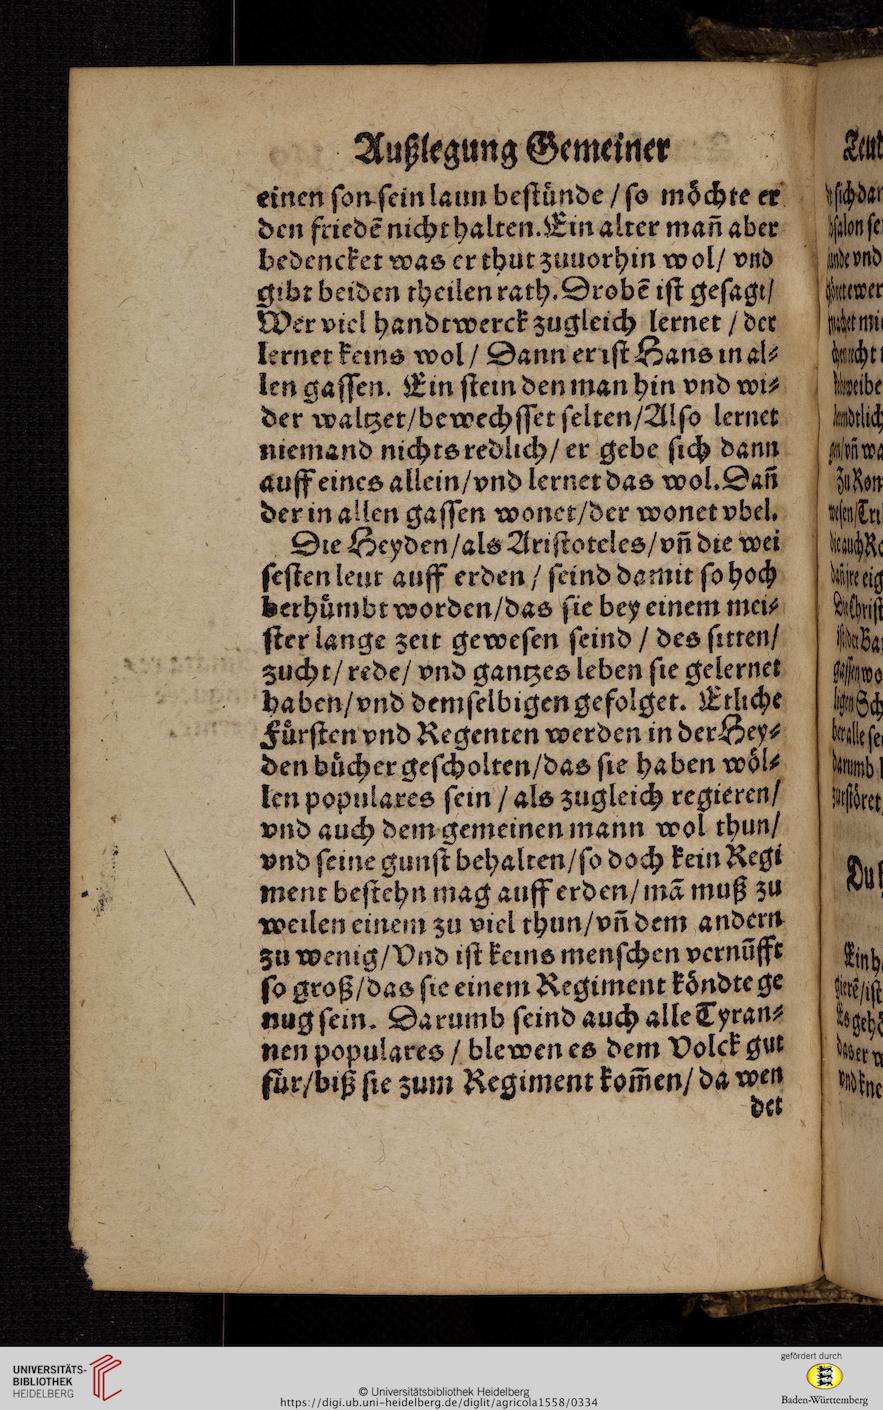 Außlegung Gemeiner
einen son sein laun bestünde / so möchte er
den friedē nicht halten. Ein alter mañ aber
bedencket was er thut zuuorhin wol / vnd
gibt beiden theilen rath. Drobē ist gesagt/
Wer viel handtwerck zugleich lernet / der
lernet keins wol / Dann er ist Hans in al⸗
len gassen. Ein stein den man hin vnd wi⸗
der waltzet/bewechsset selten/Also lernet
niemand nichts redlich/ er gebe sich dann
auff eines allein/vnd lernet das wol. Dañ
der in allen gassen wonet/der wonet vbel.
Die Heyden/als Aristoteles/vñ die wei
sesten leut auff erden / seind damit so hoch
berhümbt worden/das sie bey einem mei⸗
ster lange zeit gewesen seind / des sitten/
zucht/ rede/ vnd gantzes leben sie gelernet
haben/vnd demselbigen gefolget. Etliche
Fürsten vnd Regenten werden in der Hey⸗
den bücher gescholten/das sie haben wöl⸗
len populares sein / als zugleich regieren/
vnd auch dem gemeinen mann wol thun/
vnd seine gunst behalten/so doch kein Regi
ment bestehn mag auff erden/mā muß zu
weilen einem zu viel thun/vñ dem andern
zu wenig/Vnd ist keins menschen vernüfft
so groß/das sie einem Regiment köndte ge
nug sein. Darumb seind auch alle Tyran⸗
nen populares / blewen es dem Volck gut
für/biß sie zum Regiment kom̃en/ da wen
det
UNIVERSITÄTS-
BIBLIOTHEK
HEIDELBERG
© Universitätsbibliothek Heidelberg
https://digi.ub.uni-heidelberg.de/diglit/agricola1558/0334
gefördert durch
Baden-Württemberg